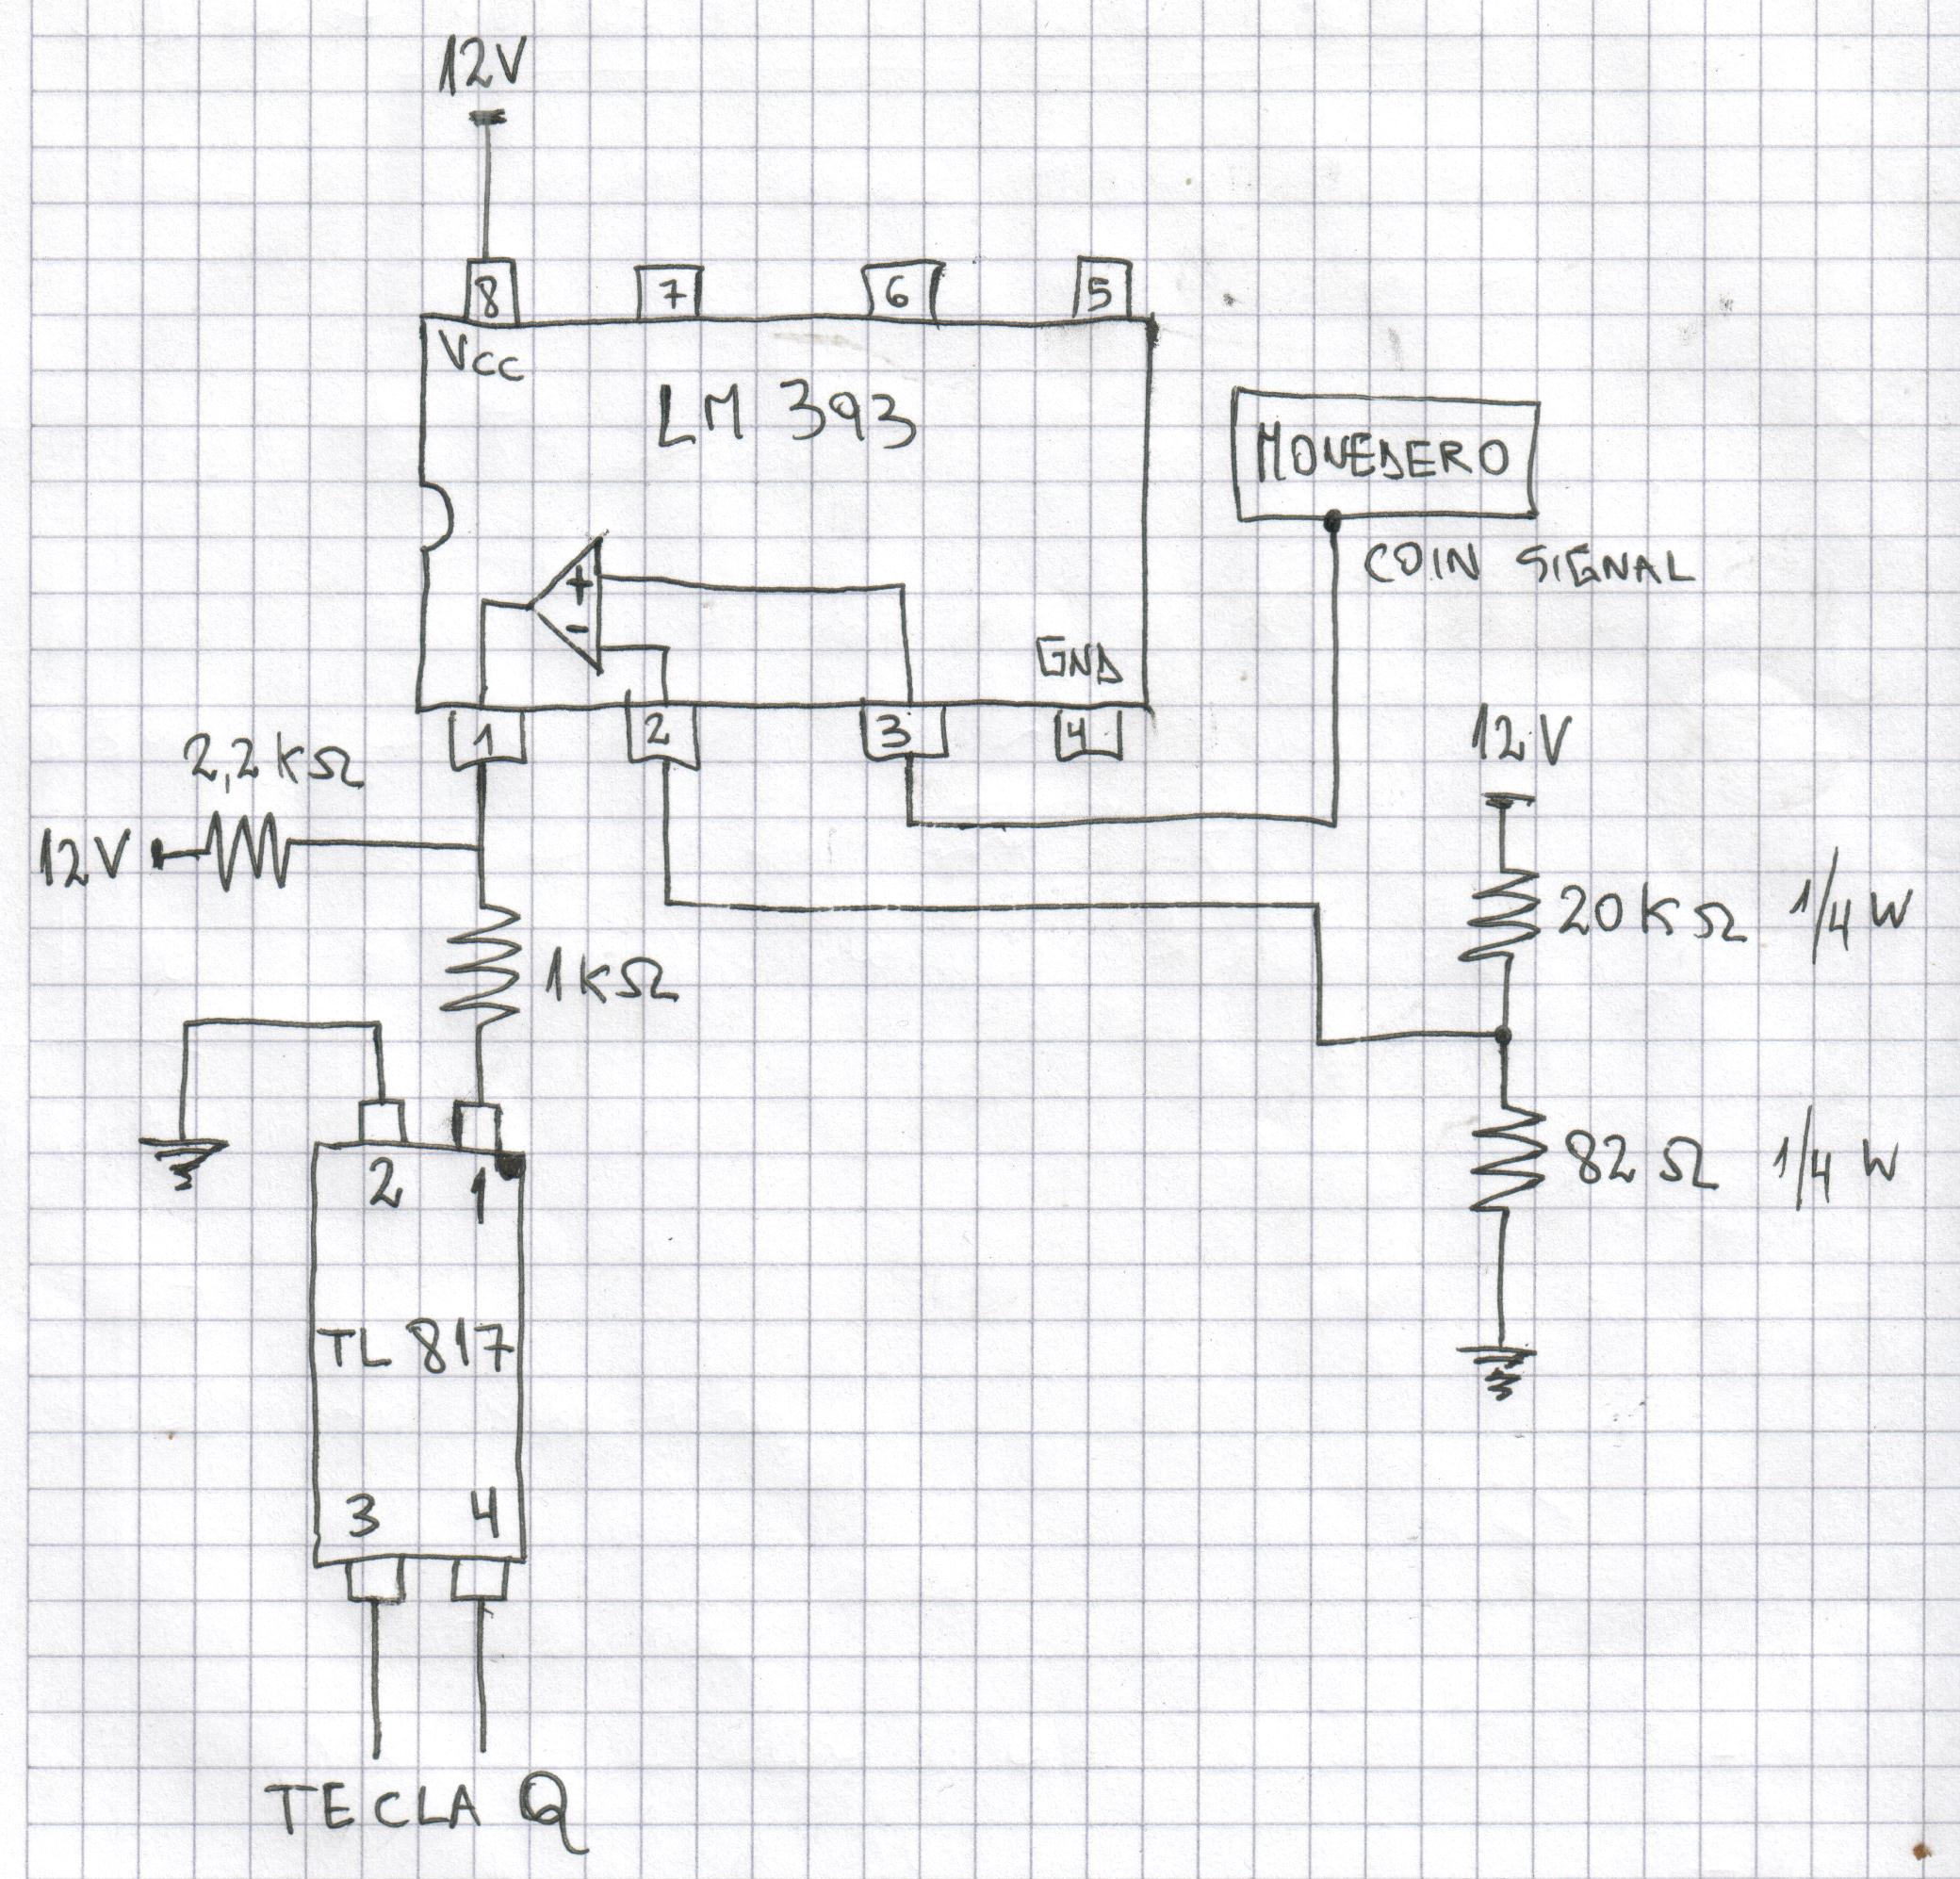 12V
8 7 6 5
VCC
LM 393
MONEDERO
COIN SIGNAL
+
-
GND
1 2 3 4
2,2 KΩ
12V
12V
20 KΩ 1/4 W
1KΩ
2 1
82 Ω 1/4 W
TL 817
3 4
TECLA Q